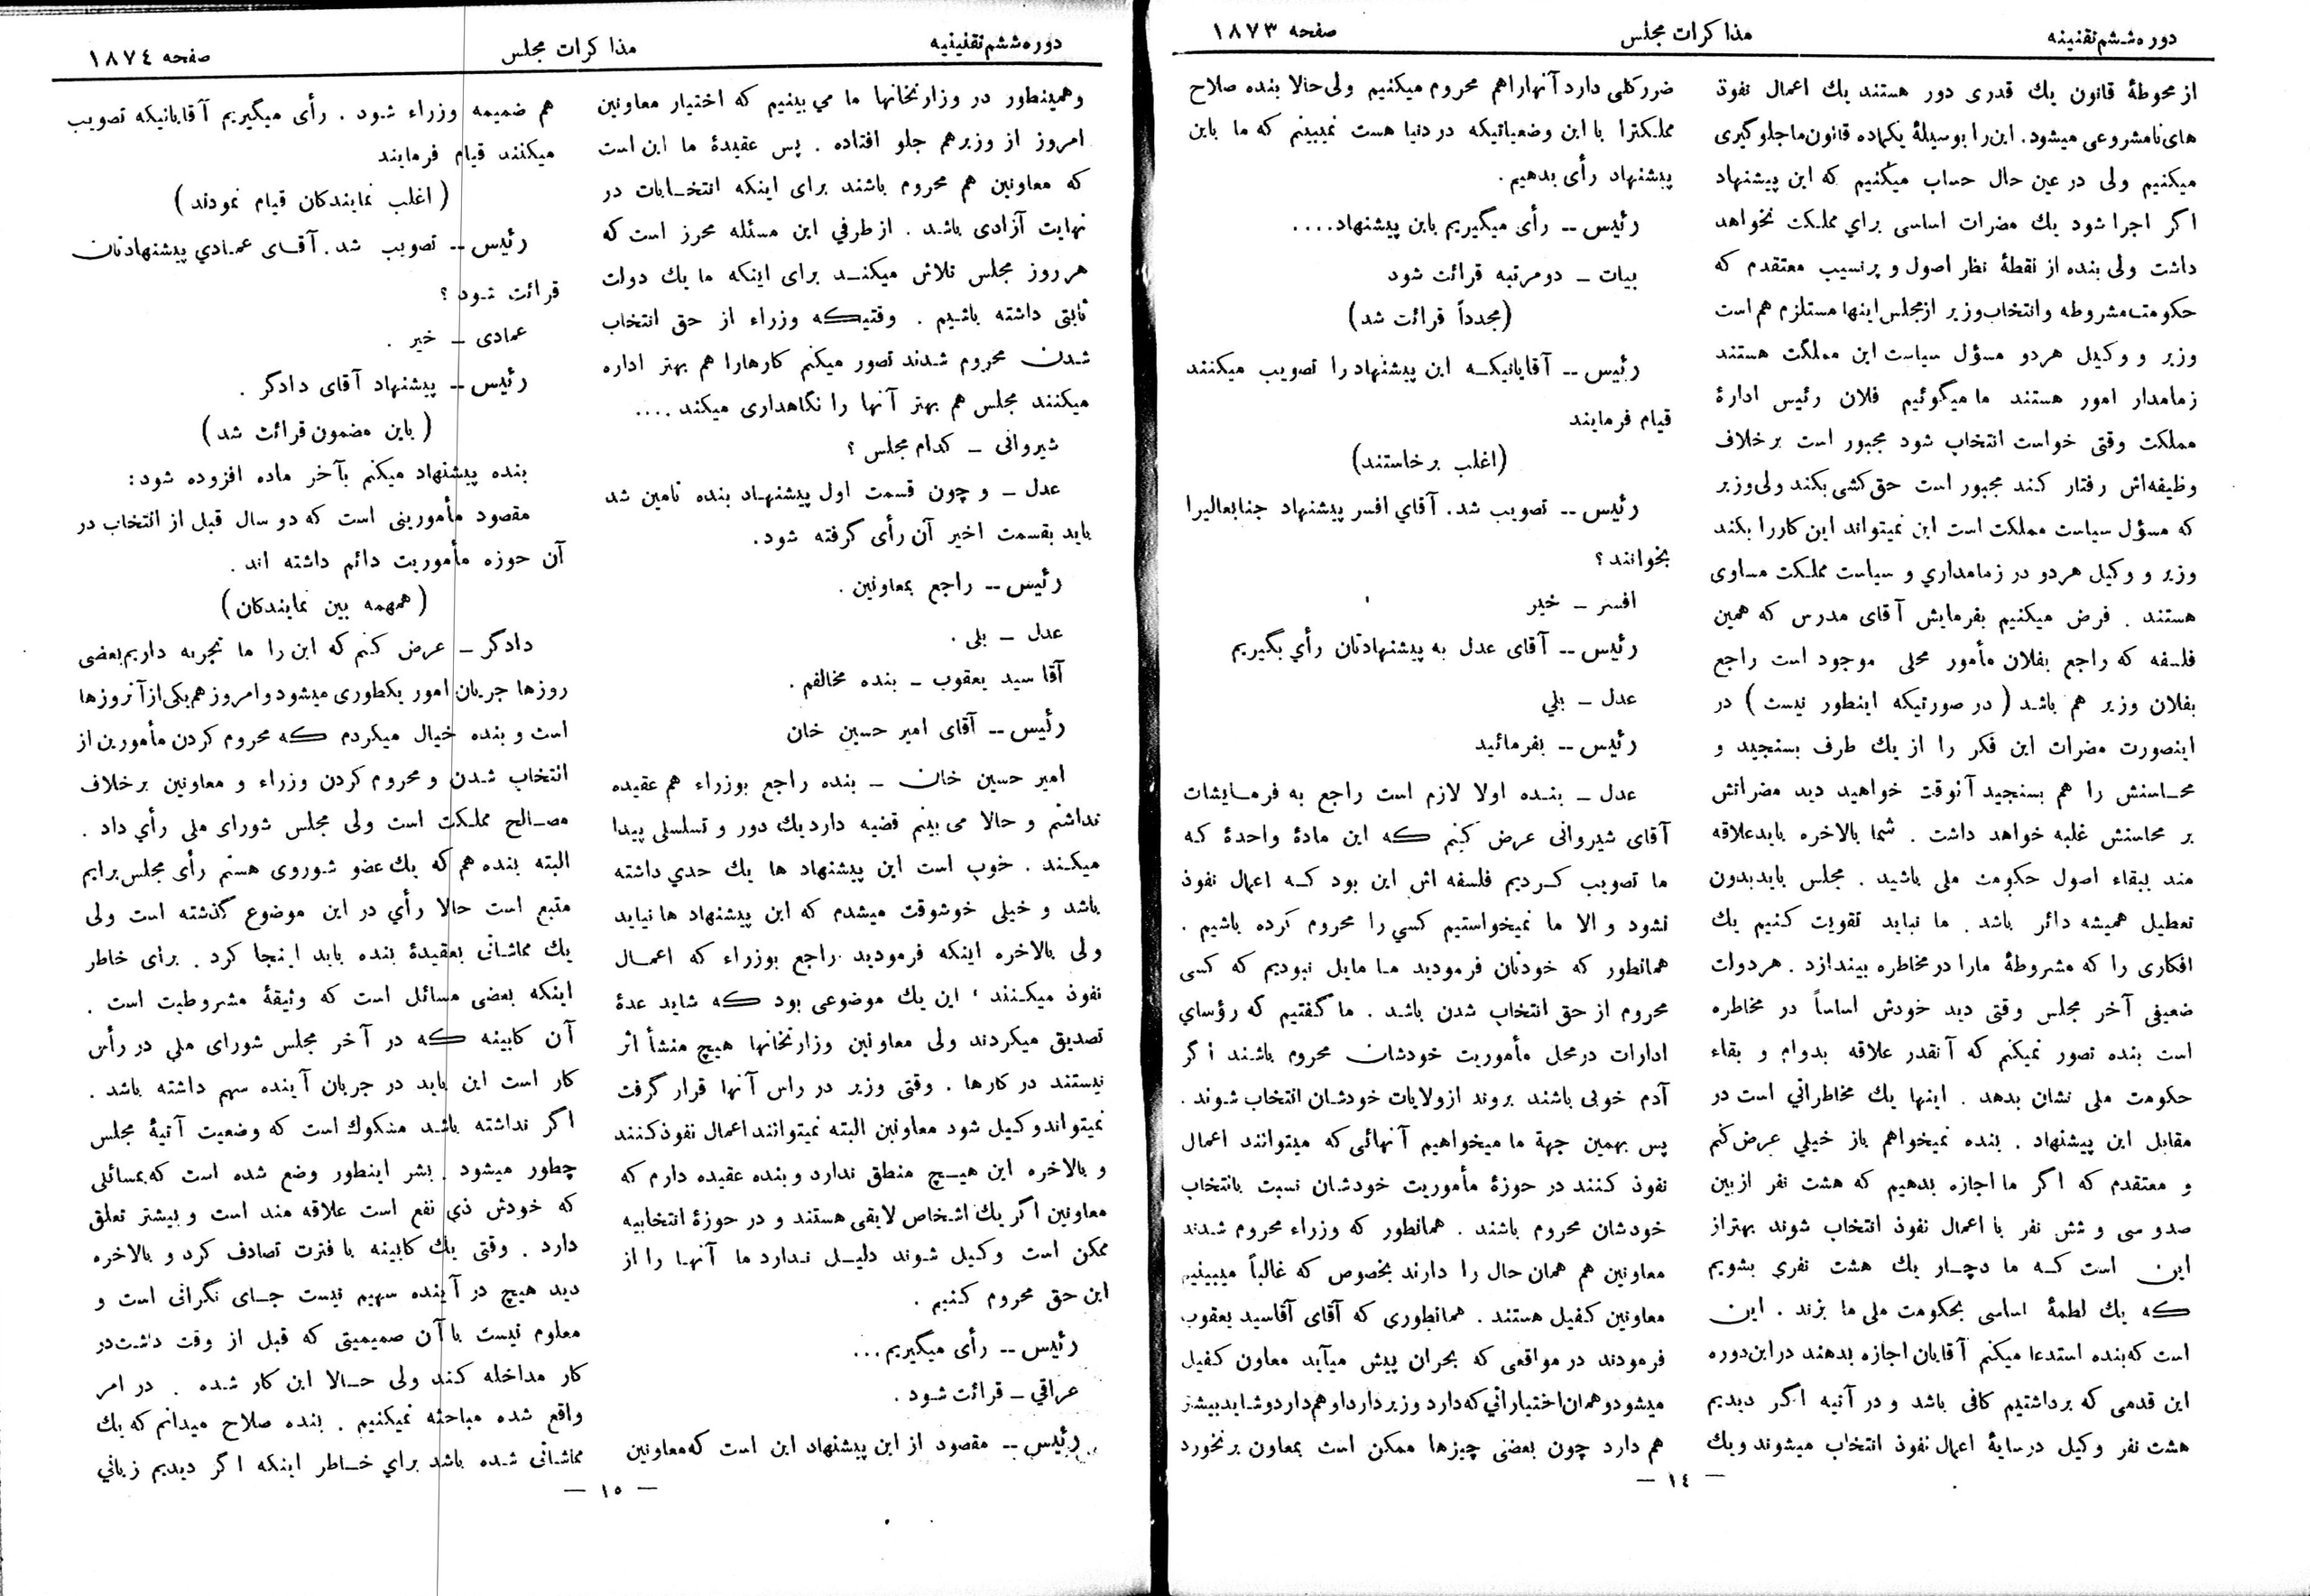 دوره ششم تقنینیه
مذاکرات مجلس
صفحه ۱۸۷۳
از محوطهٔ قانون یك قدری دور هستند یك اعمال نفوذ
های نامشروعی میشود. این را بوسیلهٔ یکماده قانون ما جلوگیری
میکنیم ولی در عین حال حساب میکنیم که این پیشنهاد
اگر اجرا شود یك مضرات اساسی براي مملکت نخواهد
داشت ولی بنده از نقطهٔ نظر اصول و پرنسیب معتقدم که
حکومت مشروطه و انتخاب وزیر از مجلس اینها مستلزم هم است
وزیر و وکیل هر دو مسؤل سیاست این مملکت هستند
زمامدار امور هستند ما میگوئیم فلان رئیس ادارهٔ
مملکت وقتی خواست انتخاب شود مجبور است بر خلاف
وظیفه‌اش رفتار کند مجبور است حق کشی بکند ولی وزیر
که مسؤل سیاست مملکت است این نمیتواند این کار را بکند
وزیر و وکیل هر دو در زمامداري و سیاست مملکت مساوی
هستند . فرض میکنیم بفرمایش آقای مدرس که همین
فلسفه که راجع بفلان مأمور محلی موجود است راجع
بفلان وزیر هم باشد ( در صورتیکه اینطور نیست ) در
اینصورت مضرات این فکر را از یك طرف بسنجید و
محاسنش را هم بسنجید آنوقت خواهید دید مضراتش
بر محاسنش غلبه خواهد داشت . شما بالاخره باید علاقه
مند ببقاء اصول حکومت ملی باشید . مجلس باید بدون
تعطیل همیشه دائر باشد . ما نباید تقویت کنیم یك
افکاری را که مشروطهٔ ما را در مخاطره بیندازد . هر دولت
ضعیفی آخر مجلس وقتی دید خودش اساساً در مخاطره
است بنده تصور نمیکنم که آنقدر علاقه بدوام و بقاء
حکومت ملی نشان بدهد . اینها یك مخاطراتي است در
مقابل این پیشنهاد . بنده نمیخواهم باز خیلي عرض کنم
و معتقدم که اگر ما اجازه بدهیم که هشت نفر از بین
صد و سی و شش نفر با اعمال نفوذ انتخاب شوند بهتر از
این است که ما دچار یك هشت نفري بشویم
که یك لطمهٔ اساسی بحکومت ملی ما بزند . این
است که بنده استدعا میکنم آقایان اجازه بدهند در این دوره
این قدمی که برداشتیم کافی باشد و در آتیه اگر دیدیم
هشت نفر وکیل در سایهٔ اعمال نفوذ انتخاب میشوند و یك
ضرر کلی دارد آنها را هم محروم میکنیم ولی حالا بنده صلاح
مملکت را با این وضعیاتیکه در دنیا هست نمیبینم که ما باین
پیشنهاد رأی بدهیم .
رئیس -- رأی میگیریم باین پیشنهاد....
بیات - دو مرتبه قرائت شود
(مجدداً قرائت شد)
رئیس -- آقایانیکه این پیشنهاد را تصویب میکنند
قیام فرمایند
(اغلب برخاستند)
رئیس -- تصویب شد. آقاي افسر پیشنهاد جنابعالیرا
بخوانند ؟
افسر - خیر
رئیس -- آقای عدل به پیشنهادتان رأي بگیریم
عدل - بلي
رئیس -- بفرمائید
عدل - بنده اولا لازم است راجع به فرمایشات
آقای شیروانی عرض کنم که این مادهٔ واحدهٔ که
ما تصویب کردیم فلسفه اش این بود که اعمال نفوذ
نشود و الا ما نمیخواستیم کسي را محروم کرده باشیم .
همانطور که خودتان فرمودید ما مایل نبودیم که کسی
محروم از حق انتخاب شدن باشد . ما گفتیم که رؤساي
ادارات در محل مأموریت خودشان محروم باشند اگر
آدم خوبی باشند بروند از ولایات خودشان انتخاب شوند .
پس بهمین جهة ما میخواهیم آنهائی که میتوانند اعمال
نفوذ کنند در حوزهٔ مأموریت خودشان نسبت بانتخاب
خودشان محروم باشند . همانطور که وزراء محروم شدند
معاونین هم همان حال را دارند بخصوص که غالباً میبینیم
معاونین کفیل هستند . همانطوری که آقای آقا سید یعقوب
فرمودند در مواقعی که بحران پیش میآید معاون کفیل
میشود و همان اختیاراتي که دارد وزیر دارد او هم دارد و شاید بیشتر
هم دارد چون بعضی چیزها ممکن است بمعاون برنخورد
— ١٤ —
دوره ششم تقنینیه
مذاکرات مجلس
صفحه ۱۸۷٤
و همینطور در وزارتخانها ما مي بینیم که اختیار معاونین
امروز از وزیر هم جلو افتاده . پس عقیدهٔ ما این است
که معاونین هم محروم باشند برای اینکه انتخابات در
نهایت آزادی باشد . از طرفي این مسئله محرز است که
هر روز مجلس تلاش میکند برای اینکه ما یك دولت
ثابتی داشته باشیم . وقتیکه وزراء از حق انتخاب
شدن محروم شدند تصور میکنم کارها را هم بهتر اداره
میکنند مجلس هم بهتر آنها را نگاهداری میکند ....
شیروانی - کدام مجلس ؟
عدل - و چون قسمت اول پیشنهاد بنده تامین شد
باید بقسمت اخیر آن رأی گرفته شود.
رئیس -- راجع بمعاونین .
عدل - بلی .
آقا سید یعقوب - بنده مخالفم .
رئیس -- آقای امیر حسین خان
امیر حسین خان - بنده راجع بوزراء هم عقیده
نداشتم و حالا می بینم قضیه دارد یك دور و تسلسلی پیدا
میکند . خوب است این پیشنهاد ها یك حدي داشته
باشد و خیلی خوشوقت میشدم که این پیشنهاد ها نیاید
ولی بالاخره اینکه فرمودید راجع بوزراء که اعمال
نفوذ میکنند ، این یك موضوعی بود که شاید عدهٔ
تصدیق میکردند ولی معاونین وزارتخانها هیچ منشأ اثر
نیستند در کارها . وقتی وزیر در راس آنها قرار گرفت
نمیتواند وکیل شود معاونین البته نمیتوانند اعمال نفوذ کنند
و بالاخره این هیچ منطق ندارد و بنده عقیده دارم که
معاونین اگر یك اشخاص لایقی هستند و در حوزهٔ انتخابیه
ممکن است وکیل شوند دلیل ندارد ما آنها را از
این حق محروم کنیم .
رئیس -- رأی میگیریم ...
عراقي - قرائت شود .
رئیس -- مقصود از این پیشنهاد این است که معاونین
هم ضمیمه وزراء شود . رأی میگیریم آقایانیکه تصویب
میکنند قیام فرمایند
( اغلب نمایندکان قیام نمودند )
رئیس -- تصویب شد . آقای عمادي پیشنهادتان
قرائت شود ؟
عمادی - خیر .
رئیس -- پیشنهاد آقای دادگر .
( باین مضمون قرائت شد )
بنده پیشنهاد میکنم بآخر ماده افزوده شود :
مقصود مأمورینی است که دو سال قبل از انتخاب در
آن حوزه مأموریت دائم داشته اند .
( همهمه بین نمایندکان )
دادگر - عرض کنم که این را ما تجربه داریم بعضی
روزها جریان امور یکطوری میشود و امروز هم یکی از آنروزها
است و بنده خیال میکردم که محروم کردن مأمورین از
انتخاب شدن و محروم کردن وزراء و معاونین بر خلاف
مصالح مملکت است ولی مجلس شورای ملی رأي داد .
البته بنده هم که یك عضو شوروی هستم رأی مجلس برایم
متبع است حالا رأي در این موضوع گذشته است ولی
یك مماشاتی بعقیدهٔ بنده باید اینجا کرد . برای خاطر
اینکه بعضی مسائل است که وثیقهٔ مشروطیت است .
آن کابینه که در آخر مجلس شورای ملي در رأس
کار است این باید در جریان آینده سهم داشته باشد .
اگر نداشته باشد مشکوك است که وضعیت آتیهٔ مجلس
چطور میشود . بشر اینطور وضع شده است که بمسائلی
که خودش ذي نفع است علاقه مند است و بیشتر تعلق
دارد . وقتی یك کابینه با فترت تصادف کرد و بالاخره
دید هیچ در آینده سهیم نیست جای نگرانی است و
معلوم نیست با آن صمیمیتی که قبل از وقت داشت در
کار مداخله کند ولی حالا این کار شده . در امر
واقع شده مباحثه نمیکنیم . بنده صلاح میدانم که یك
مماشاتی شده باشد براي خاطر اینکه اگر دیدیم زیاني
— ١٥ —